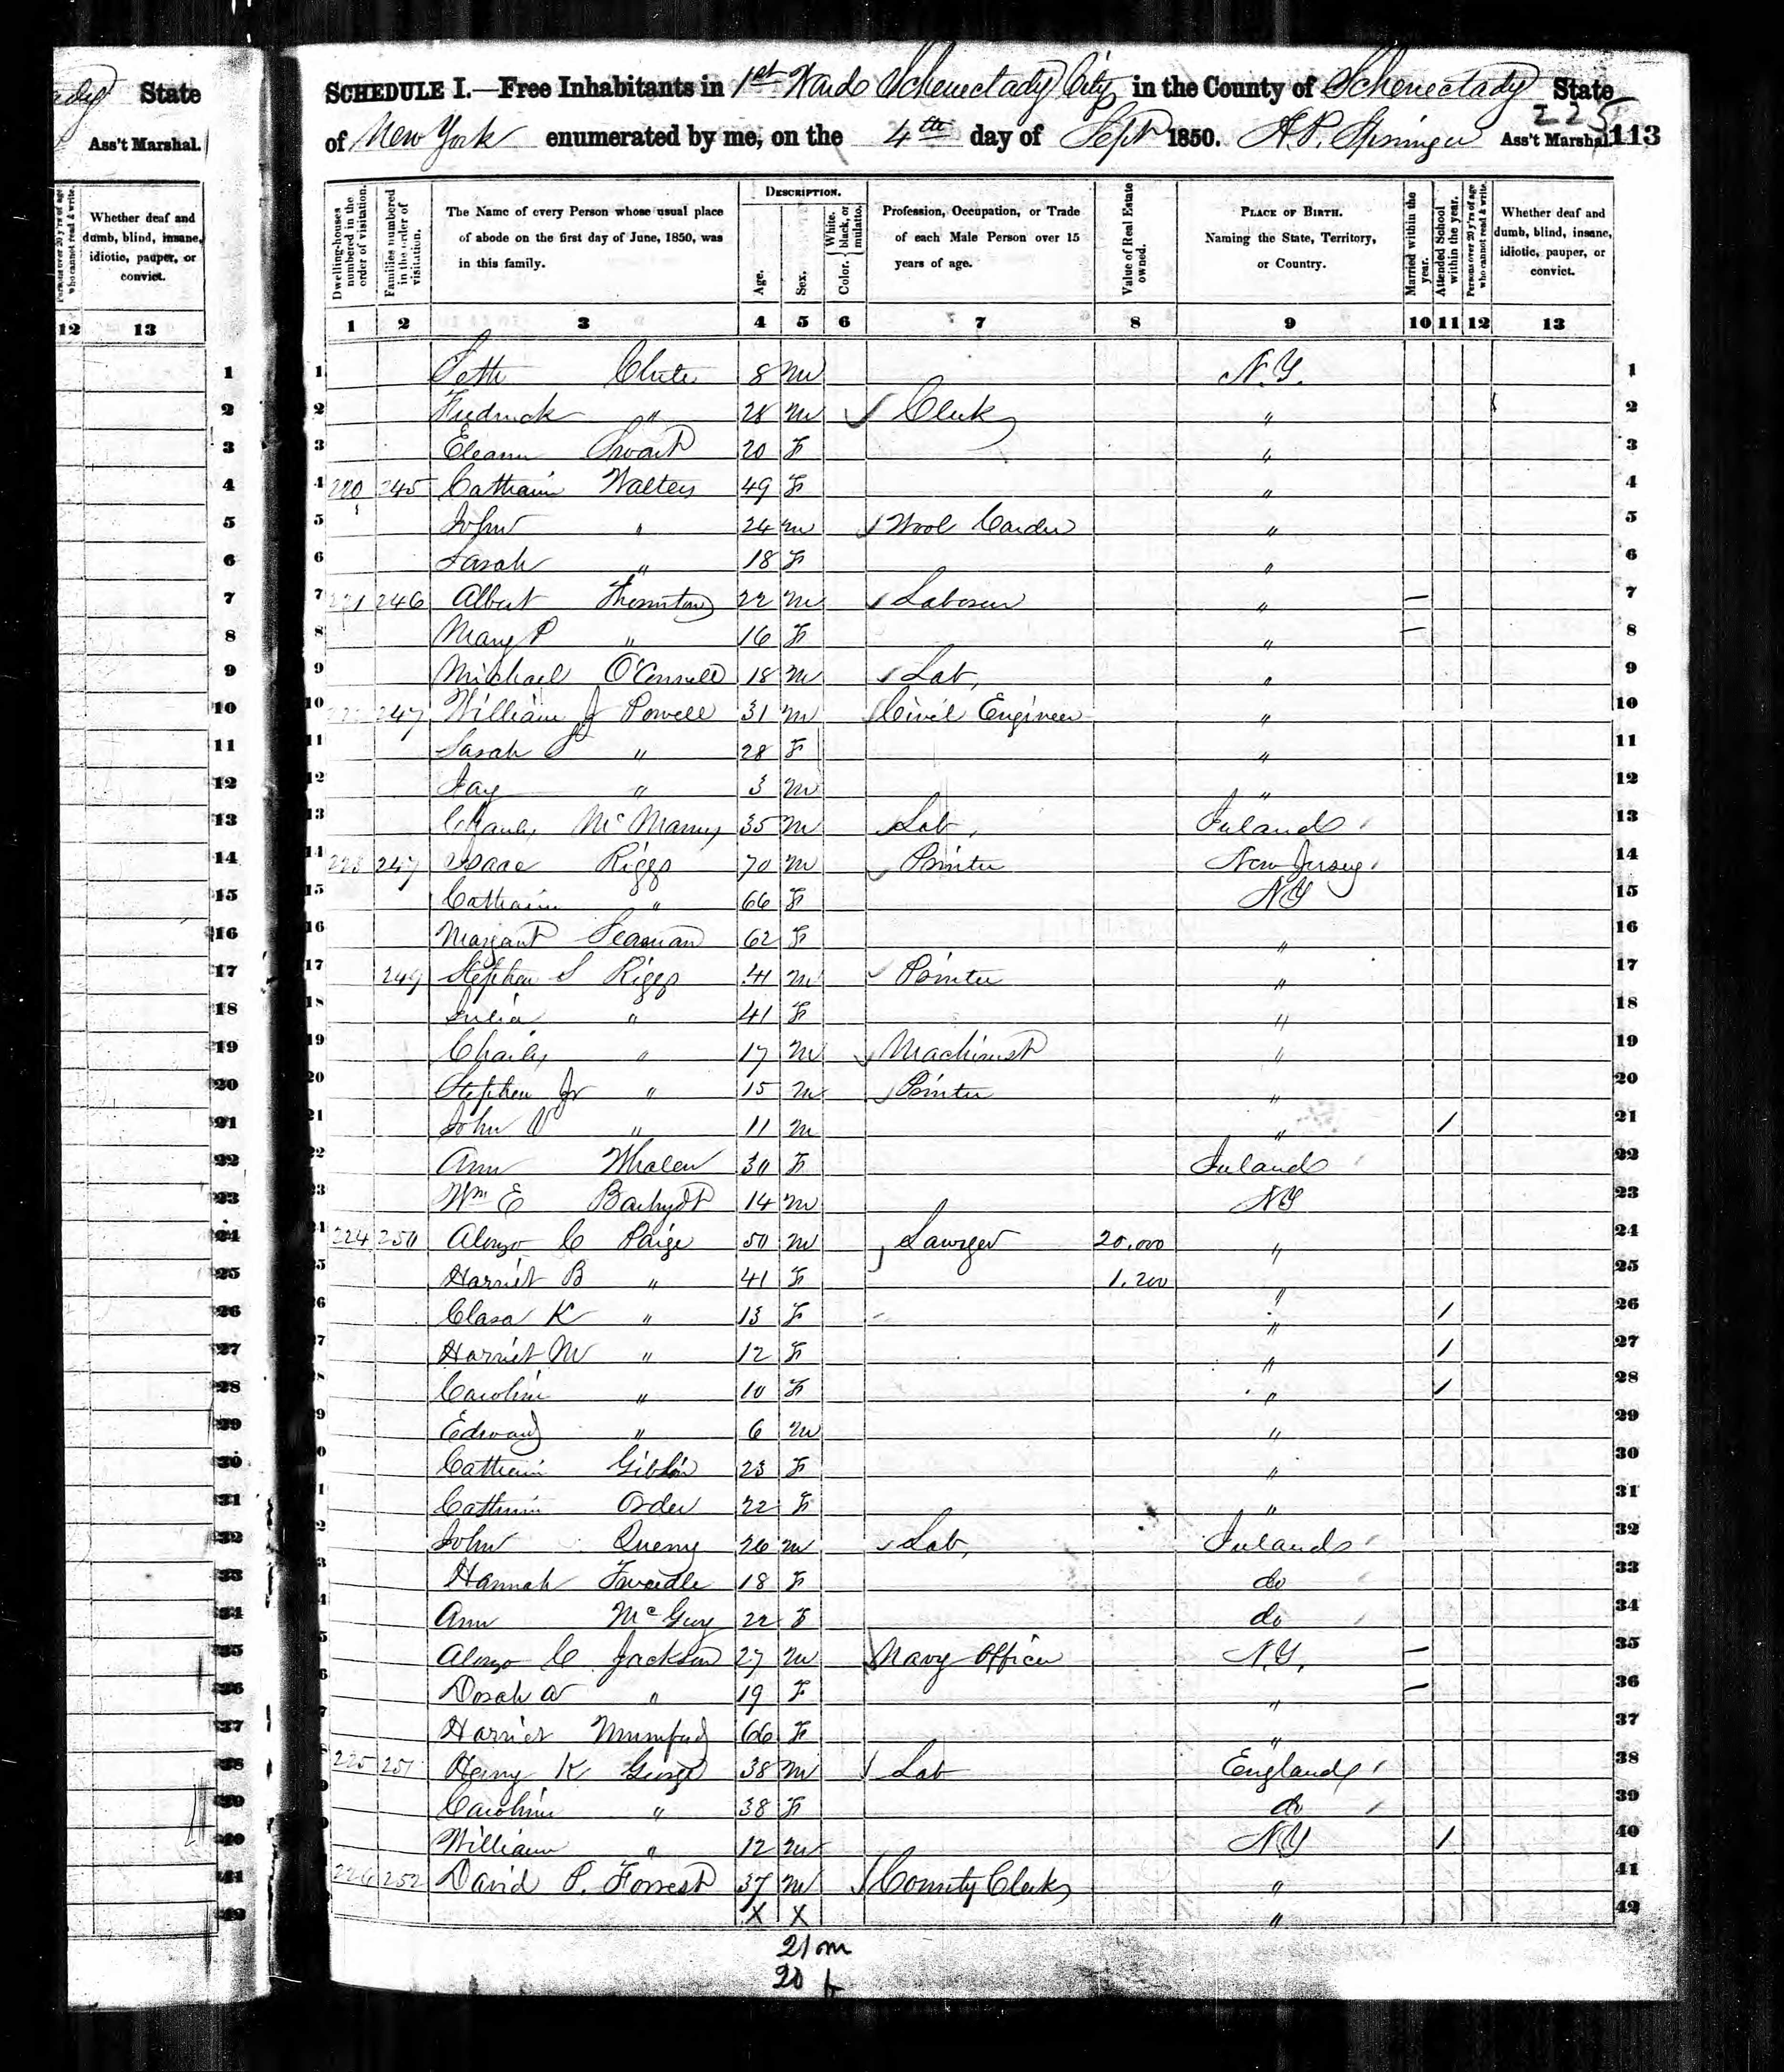 ady State
Ass't Marshal.
Persons over 20 y'rs of age who cannot read & write.
Whether deaf and dumb, blind, insane, idiotic, pauper, or convict.
12 13
SCHEDULE I.—Free Inhabitants in 1st Ward Schenectady City in the County of Schenectady State
of New York enumerated by me, on the 4th day of Sept 1850. A. P. Springer Ass't Marshal. 225 113
Dwelling-houses numbered in the order of visitation.
Families numbered in the order of visitation.
The Name of every Person whose usual place of abode on the first day of June, 1850, was in this family.
DESCRIPTION.
Age.
Sex.
Color. { White, black, or mulatto.
Profession, Occupation, or Trade of each Male Person over 15 years of age.
Value of Real Estate owned.
PLACE OF BIRTH. Naming the State, Territory, or Country.
Married within the year.
Attended School within the year.
Persons over 20 y'rs of age who cannot read & write.
Whether deaf and dumb, blind, insane, idiotic, pauper, or convict.
1 2 3 4 5 6 7 8 9 10 11 12 13
1 Clute 8 M N.Y. 1
2 Fredrick " 28 M Clerk " 2
3 Eleanor Swart 20 F " 3
4 220 245 Catharin Walters 49 F " 4
5 John " 24 M Wool Carder " 5
6 Sarah " 18 F " 6
7 221 246 Albert Thornton 22 M Laborer " — 7
8 Mary P " 16 F " — 8
9 Michael O'Connell 18 M Lab, " 9
10 247 William J Powell 31 M Civil Engineer " 10
11 Sarah S " 28 F " 11
12 Jay " 3 M " 12
13 Charles McManus 35 M Lab, Ireland 13
14 223 247 Isaac Riggs 70 M Printer New Jersey 14
15 Catharin " 66 F NY 15
16 Margaret Seaman 62 F " 16
17 249 Stephen S Riggs 41 M Printer " 17
18 Julia " 41 F " 18
19 Charles " 17 M Machinist " 19
20 Stephen Jr " 15 M Printer " 20
21 John V " 11 M " / 21
22 Ann Whalen 30 F Ireland 22
23 Wm E Barhydt 14 M NY 23
24 224 250 Alonzo C Paige 50 M Lawyer 20,000 " 24
25 Harriet B " 41 F 1,200 " 25
26 Clara K " 13 F " / 26
27 Harriet M " 12 F " / 27
28 Caroline " 10 F " / 28
29 Edward " 6 M " 29
30 Catharin Giblin 23 F " 30
31 Catharin Order 22 F " 31
32 John 26 M Lab, Ireland 32
33 Hannah Tweedle 18 F do 33
34 Ann McGuy 22 F do 34
35 Alonzo C Jackson 27 M Navy Officer N.Y. — 35
36 Dorah A " 19 F " — 36
37 Harriet Mumford 66 F " 37
38 225 251 Henry K George 38 M Lab England 38
39 Caroline " 38 F do 39
40 William " 12 M NY / 40
41 226 252 David P. Forrest 37 M County Clerk " 41
X X " 42
21 m
20 f